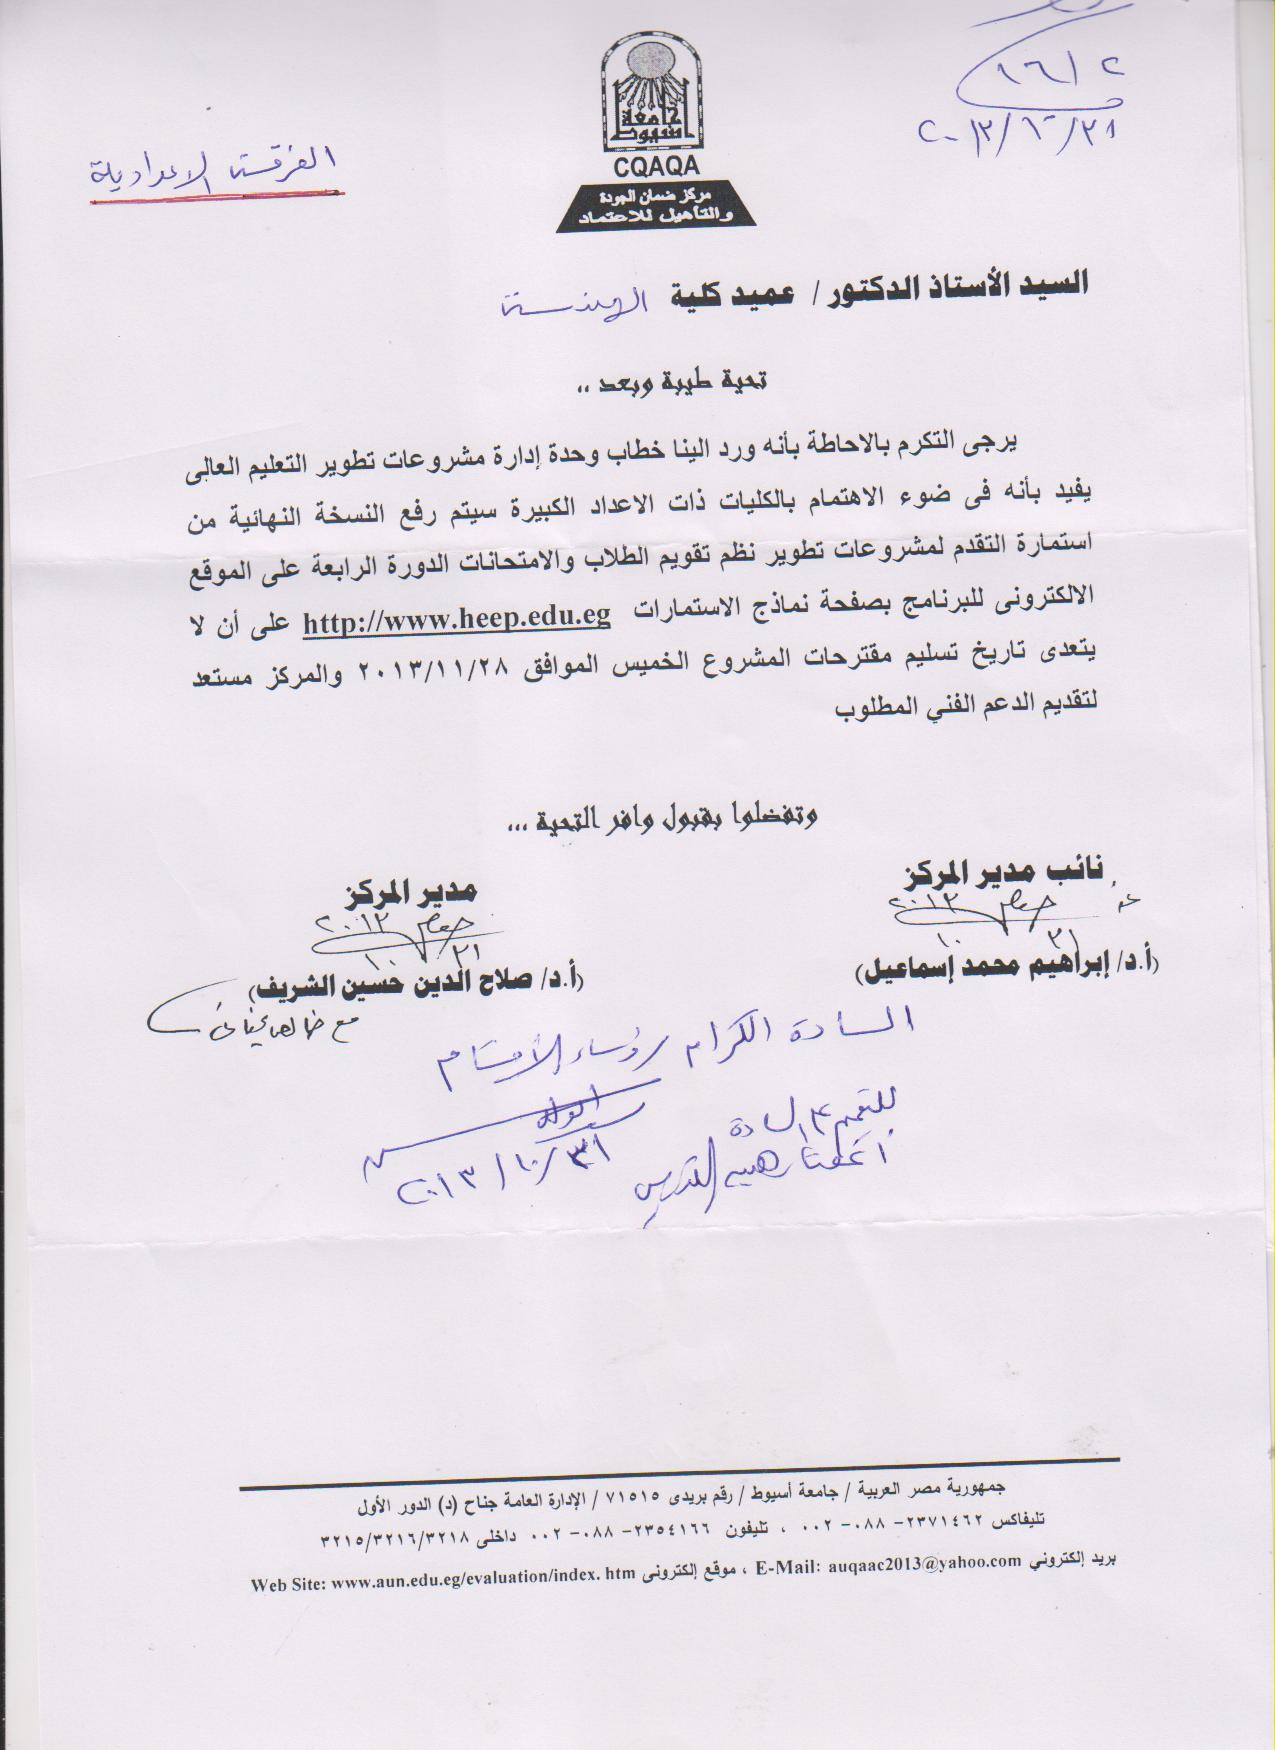 ١٦١٢
٢٠١٣/١٠/٣١
الفرقة الاعدادية
جامعة أسيوط
CQAQA
مركز ضمان الجودة
والتأهيل للاعتماد
السيد الأستاذ الدكتور / عميد كلية الهندسة
تحية طيبة وبعد ..
يرجى التكرم بالاحاطة بأنه ورد الينا خطاب وحدة إدارة مشروعات تطوير التعليم العالى
يفيد بأنه فى ضوء الاهتمام بالكليات ذات الاعداد الكبيرة سيتم رفع النسخة النهائية من
استمارة التقدم لمشروعات تطوير نظم تقويم الطلاب والامتحانات الدورة الرابعة على الموقع
الالكترونى للبرنامج بصفحة نماذج الاستمارات http://www.heep.edu.eg على أن لا
يتعدى تاريخ تسليم مقترحات المشروع الخميس الموافق ٢٠١٣/١١/٢٨ والمركز مستعد
لتقديم الدعم الفني المطلوب
وتفضلوا بقبول وافر التحية ...
نائب مدير المركز
٢٠١٣
١٠ ٣١
(أ.د/ إبراهيم محمد إسماعيل)
مدير المركز
٢٠١٣
١٠ ٣١
(أ.د/ صلاح الدين حسين الشريف)
مع خالص تحياتى
السادة الكرام رؤساء الأقسام
للتعميم على السادة
أعضاء هيئة التدريس
٢٠١٣/١٠/٣١
جمهورية مصر العربية / جامعة أسيوط / رقم بريدى ٧١٥١٥ / الإدارة العامة جناح (د) الدور الأول
تليفاكس ٢٣٧١٤٦٢- ٠٨٨- ٠٠٢ ، تليفون ٢٣٥٤١٦٦- ٠٨٨- ٠٠٢ داخلى ٣٢١٥/٣٢١٦/٣٢١٨
بريد إلكتروني E-Mail: auqaac2013@yahoo.com ، موقع إلكترونى Web Site: www.aun.edu.eg/evaluation/index. htm